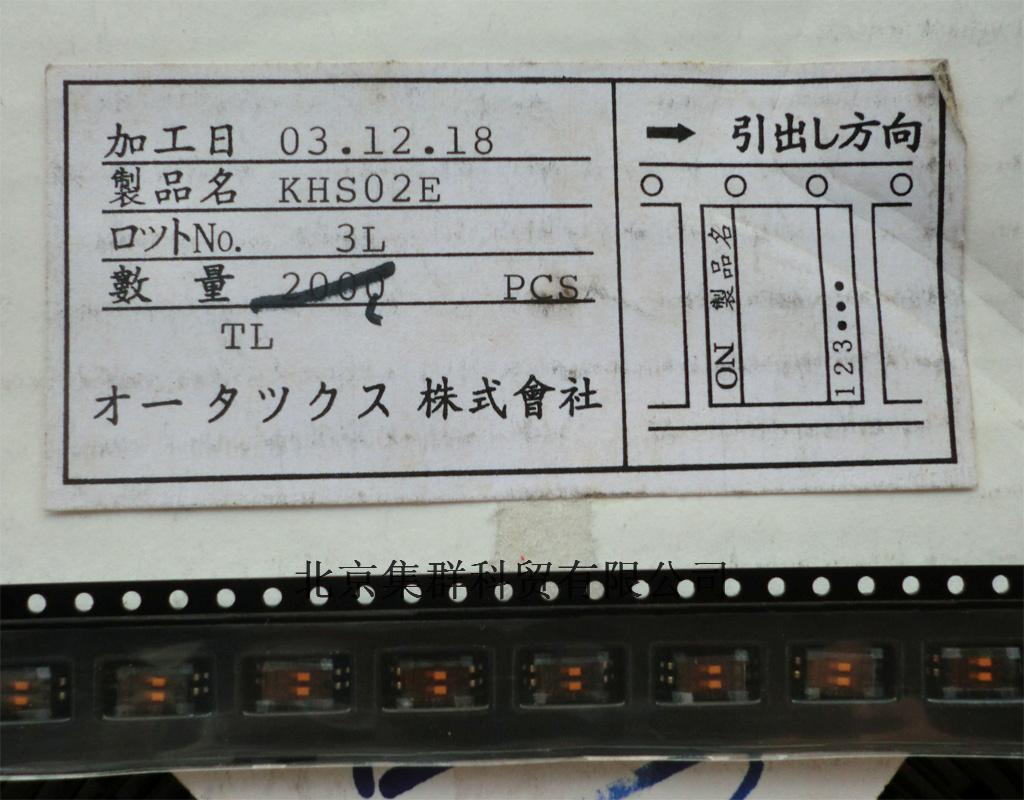 加工日 03.12.18
製品名 KHS02E
ロットNo. 3L
數量 2000 PCS
TL
オータックス 株式會社
→ 引出し方向
製品名
ON
123•••
北京集群科贸有限公司